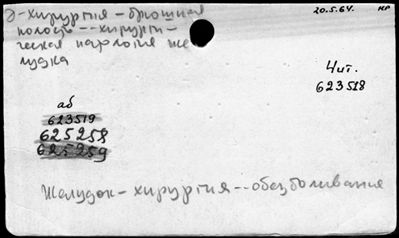 Э-хирургия-брюшная
20.5.64. НР
полость--хирурги-
ческая патология же
лудка
Чит.
623518
аб
623519
625258
625259
Желудок-хирургия--обезболивание